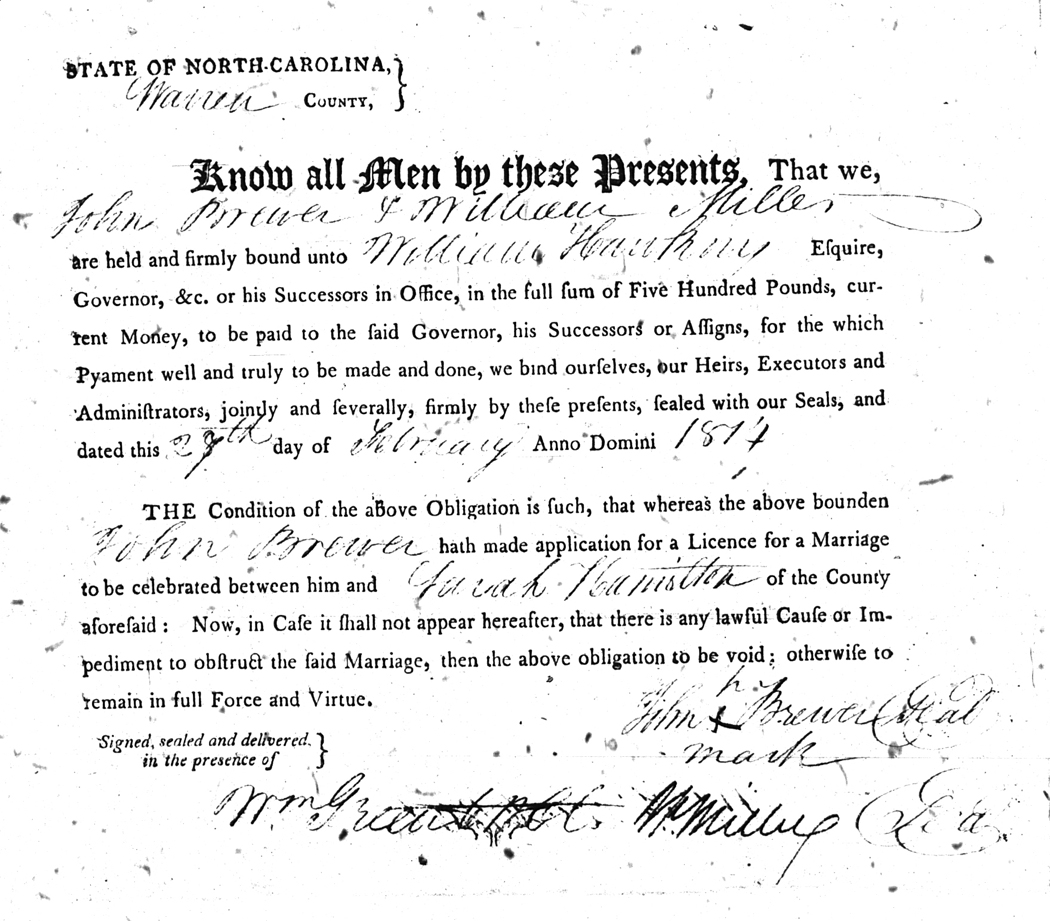 STATE OF NORTH-CAROLINA,
Warren COUNTY,
Know all Men by these Presents, That we,
John Brewer & William Miller
are held and firmly bound unto William Hawkins Eſquire,
Governor, &c. or his Succeſſors in Office, in the full ſum of Five Hundred Pounds, cur-
rent Money, to be paid to the ſaid Governor, his Succeſſors or Aſſigns, for the which
Pyament well and truly to be made and done, we bind ourſelves, our Heirs, Executors and
Adminiſtrators, jointly and ſeverally, firmly by theſe preſents, ſealed with our Seals, and
dated this 27th day of February Anno Domini 1814
THE Condition of the above Obligation is ſuch, that whereas the above bounden
John Brewer hath made application for a Licence for a Marriage
to be celebrated between him and Sarah Hamilton of the County
aforeſaid: Now, in Caſe it ſhall not appear hereafter, that there is any lawful Cauſe or Im-
pediment to obſtruct the ſaid Marriage, then the above obligation to be void; otherwiſe to
remain in full Force and Virtue.
John h x Brewer Seal
mark
Signed, sealed and delivered
in the presence of
Wm Green Wm Miller Seal